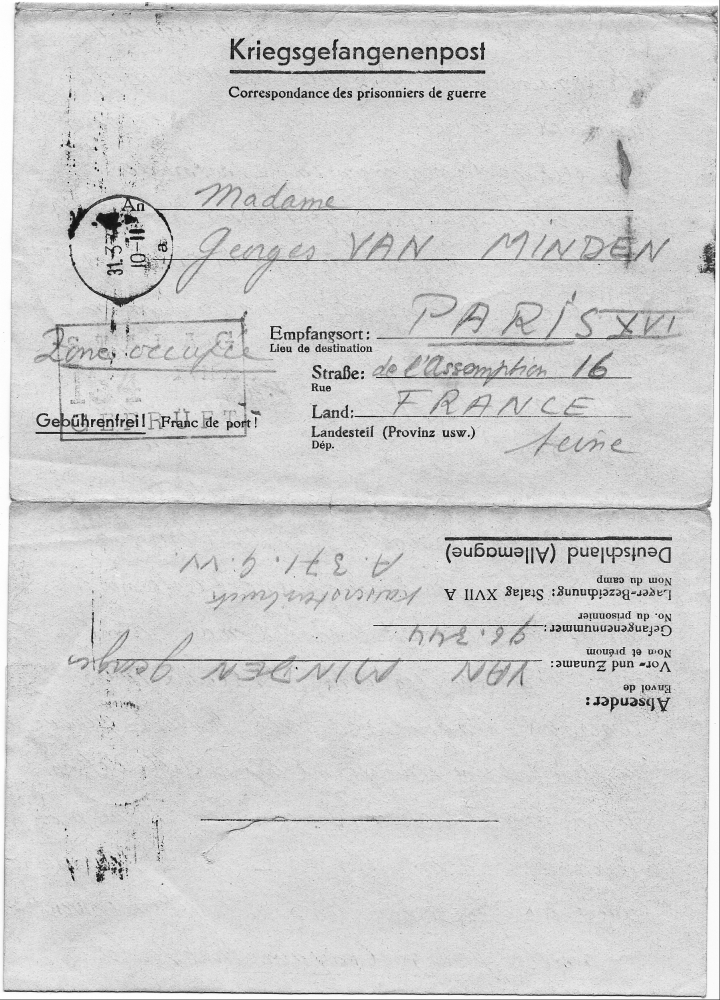 Kriegsgefangenenpost
Correspondance des prisonniers de guerre
An Madame
Georges VAN MINDEN
31.3
10-11
a
Empfangsort: PARIS XVI
Lieu de destination
Zone occupée
Straße: de l'Assomption 16
Rue
Land: FRANCE
Gebührenfrei! Franc de port!
GEPRÜFT
Landesteil (Provinz usw.) Seine
Dép.
Absender:
Envoi de
Vor- und Zuname: VAN MINDEN Georges
Nom et prénom
Gefangenennummer: 96.344
No. du prisonnier
Lager-Bezeichnung: Stalag XVII A Kaisersteinbruch
Nom du camp
Deutschland (Allemagne) A. 371. G.VV.